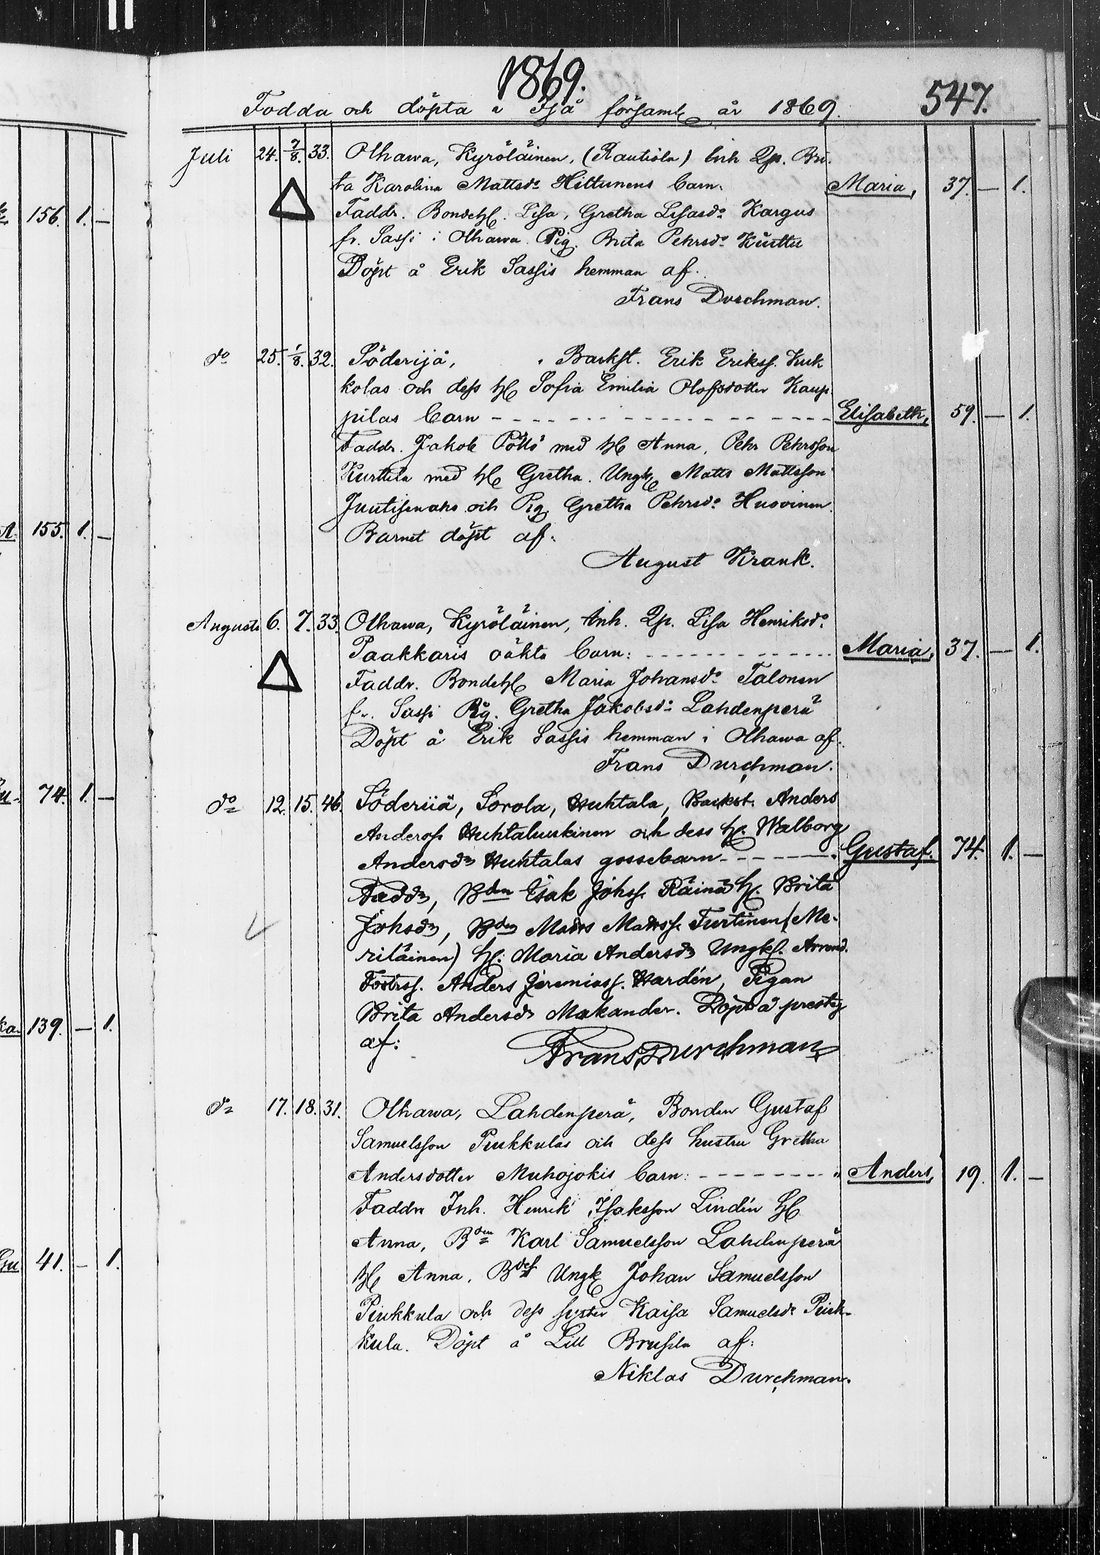 1869.
547.
Födda och döpta i Ijå församl. år 1869.
156. 1. —
155. 1. —
74. 1. —
139. — 1.
41. — 1.
Juli 24. 7/8. 33. Olhawa, Kyröläinen, (Rautiola) Inh Qp. Bri-
ta Karolina Mattsdr Hiltunens barn. Maria, 37. — 1.
Faddr. Bondehf. Lisa, Gretha Lisasdr Kargus
fr. Sassi i Olhawa. Pig. Brita Pehrsdr
Döpt å Erik Sassis hemman af.
Frans Durchman.
do 25. 1/8. 32. Söderijå, Backst. Erik Erikss. Kuk
kolas och dess hf Sofia Emilia Olofsdotter Kaup
pilas barn - - - Elisabeth, 59. — 1.
Faddr. Jakob med hf Anna, Pehr Pehrsson
Kurttila med hf Gretha. Ungk. Matts Mattsson
Juutisenaho och Pig. Gretha Pehrsdr Huovinen
Barnet döpt af.
August Krank.
Augusti 6. 7. 33. Olhawa, Kyröläinen, Inh. Qp. Lisa Henriksdr
Paakkaris oäkta barn: - - - Maria, 37. — 1.
Faddr. Bondehf Maria Johansdr Talonen
fr. Sassi Pig. Gretha Jakobsdr Lahdenperä
Döpt å Erik Sassis hemman i Olhawa af.
Frans Durchman.
do 12. 15. 46. Söderiiå, Sorola, Huhtala, Backst. Anders
Anderss Huhtaluukinen och dess h. Walborg
Andersdr Huhtalas gossebarn - - - Gustaf. 74. 1. —
Faddr, Bden Isak Johss. Räinä h. Brita
Johsdr, Bden Matts Mattss. Turtinen (Me-
riläinen) h. Maria Andersdr Ungk.
Anders Jeremiass. Hardén, Pigan
Brita Andersdr Makander. Döpt å prestg
af: Frans Durchman
do 17. 18. 31. Olhawa, Lahdenperä, Bonden Gustaf
Samuelsson Piukkulas och dess hustru Gretha
Andersdotter Muhojokis barn: - - - Anders, 19. 1. —
Faddr Inh. Henrik Isaksson Lindén hf
Anna, Bden Karl Samuelsson Lahdenperä
hf Anna, Bdes Ungk Johan Samuelsson
Piukkula och dess syster Kaisa Samuelsdr Piuk-
kula. Döpt å Lill Brusila af:
Niklas Durchman.